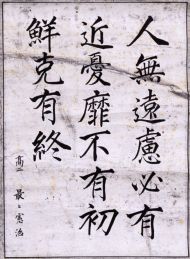 人無遠慮必有
近憂靡不有初
鮮克有終
高二 最上憲治